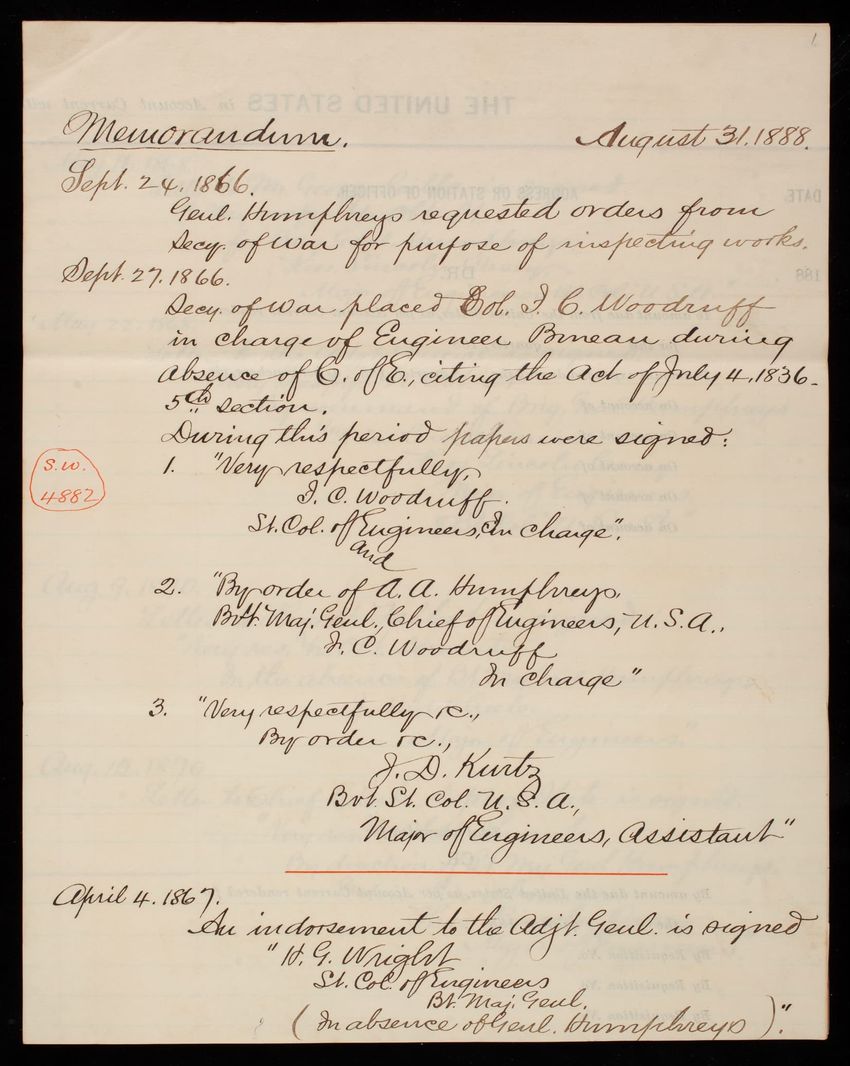 1
Memorandum. August 31. 1888.
Sept. 24. 1866.
Genl. Humphreys requested orders from
Secy. of War for purpose of inspecting works.
Sept. 27. 1866.
Secy. of War placed Col. I. C. Woodruff
in charge of Engineer Bureau during
absence of C. of E., citing the Act of July 4, 1836-
5th section.
During this period papers were signed:
S.W.
4882
1. "Very respectfully,
I. C. Woodruff.
Lt. Col. of Engineers, In charge".
and
2. "By order of A. A. Humphreys,
Bvt. Maj. Genl., Chief of Engineers, U.S.A.,
I. C. Woodruff
In charge"
3. "Very respectfully &c.,
By order &c.,
J. D. Kurtz
Bvt. Lt. Col. U.S.A.,
Major of Engineers, Assistant"
April 4. 1867.
An indorsement to the Adjt. Genl. is signed
"H. G. Wright
Lt. Col. of Engineers
Bt. Maj. Genl.
(In absence of Genl. Humphreys)".